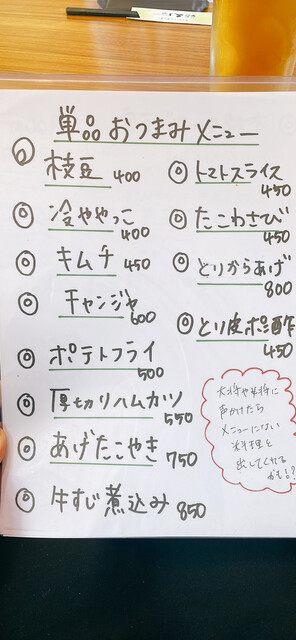 単品おつまみメニュー
◎ 枝豆 400
◎ 冷ややっこ 400
◎ キムチ 450
◎ チャンジャ 600
◎ ポテトフライ 500
◎ 厚切りハムカツ 550
◎ あげたこやき 750
◎ 牛すじ煮込み 850
◎ トマトスライス 450
◎ たこわさび 450
◎ とりからあげ 800
◎ とり皮ポン酢 450
大将や女将に
声かけたら
メニューにない
料理を
出してくれる
かも!?